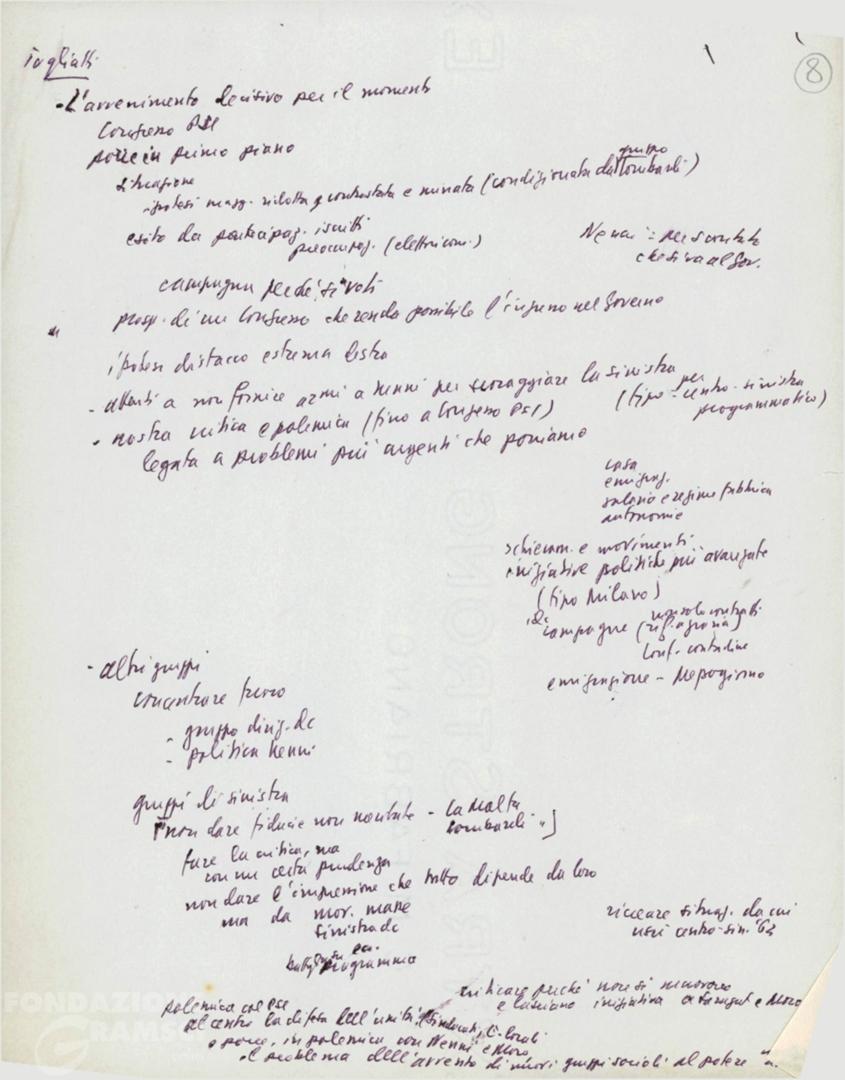 Togliatti
8
- L'avvenimento decisivo per il momento
Congresso PSI
porre in primo piano
situazione
ipotesi magg. ridotta contrastata e minata (condizionata dal gruppo Lombardi)
esito da partecipaz. iscritti
preoccupaz. (elettricom.)
Nenni = per scontato
che si va al Gov.
campagna perché si voti
prosp. di un Congresso che renda possibile l'ingresso nel Governo
ipotesi distacco estrema destra
- attenti a non fornire armi a Nenni per scoraggiare la sinistra
(tipo per centro-sinistra
programmatico)
- nostra critica e polemica (fino a Congresso PSI)
legata a problemi più urgenti che poniamo
casa
emigraz.
salario e regime fabbrica
autonomie
schieram. e movimenti
iniziative politiche più avanzate
(tipo Milano)
campagne (rif. agraria) non solo contratti
Conf. contadine
emigrazione - Mezzogiorno
- altri gruppi
concentrare fuoco
- gruppo dirig. dc
- politica Nenni
gruppi di sinistra
[non dare fiducie non meritate - La Malfa
Lombardi "]
fare la critica, ma
con una certa prudenza
non dare l'impressione che tutto dipende da loro
ma da mov. masse
sinistra dc
programma
ricreare situaz. da cui
uscì centro-sin. '62
criticare perché non si muovono
e lasciano iniziativa a Saragat e Moro
polemica col PSI
al centro la difesa dell'unità, sindacati, locali
e porre, in polemica con Nenni e Moro
il problema dell'avvento di nuovi gruppi sociali al potere
FONDAZIONE
GRAMSCI
FABRIANO
EXTRA STRONG